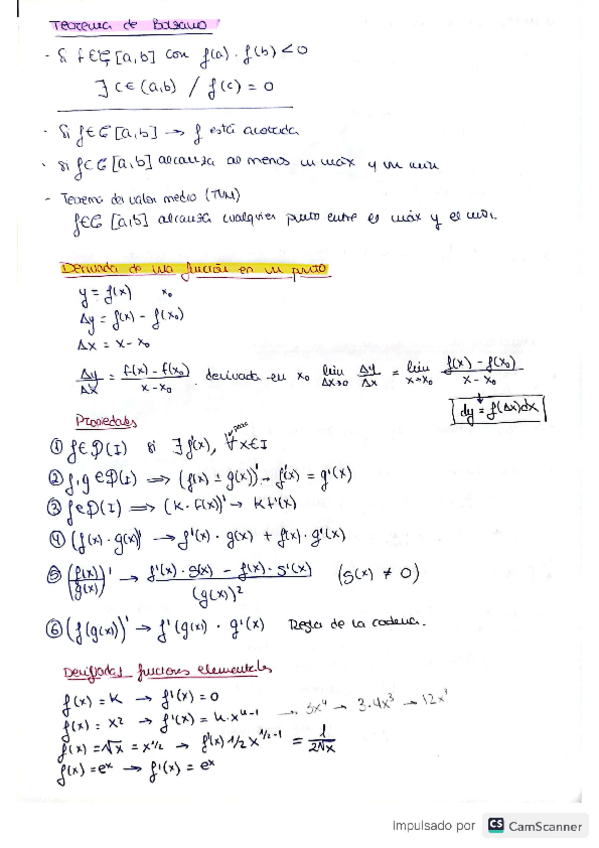 Teorema de Bolzano
- Si f∈C [a,b] con f(a)·f(b) < 0
∃ c∈(a,b) / f(c) = 0
- Si f∈C [a,b] → f está acotada
- si f∈C [a,b] alcanza al menos un máx y un min
- Teorema del valor medio (TVM)
f∈C [a,b] alcanza cualquier punto entre el máx y el min.
Derivada de una función en un punto
y = f(x) x₀
Δy = f(x) - f(x₀)
Δx = x - x₀
Δy/Δx = f(x) - f(x₀) / x - x₀ . derivada en x₀ lim Δx→0 Δy/Δx = lim x→x₀ f(x) - f(x₀) / x - x₀
dy = f(Δx)dx
Propiedades
① f∈D(I) si ∃ f'(x), ∀x∈I
② f,g∈D(I) ⟹ (f(x) ± g(x))' → f'(x) = g'(x)
③ f∈D(I) ⟹ (K·f(x))' → K f'(x)
④ (f(x)·g(x))' → f'(x)·g(x) + f(x)·g'(x)
⑤ (f(x)/g(x))' → f'(x)·g(x) - f(x)·g'(x) / (g(x))² (g(x) ≠ 0)
⑥ (f(g(x)))' → f'(g(x))·g'(x) Regla de la cadena.
funciones elementales
f(x) = K → f'(x) = 0
f(x) = x² → f'(x) = k·xᵏ⁻¹ → 3x⁴ → 3·4x³ → 12x³
f(x) = √x = x^1/2 → f'(x) 1/2 x^1/2-1 = 1/2√x
f(x) = eˣ → f'(x) = eˣ
Impulsado por CS CamScanner